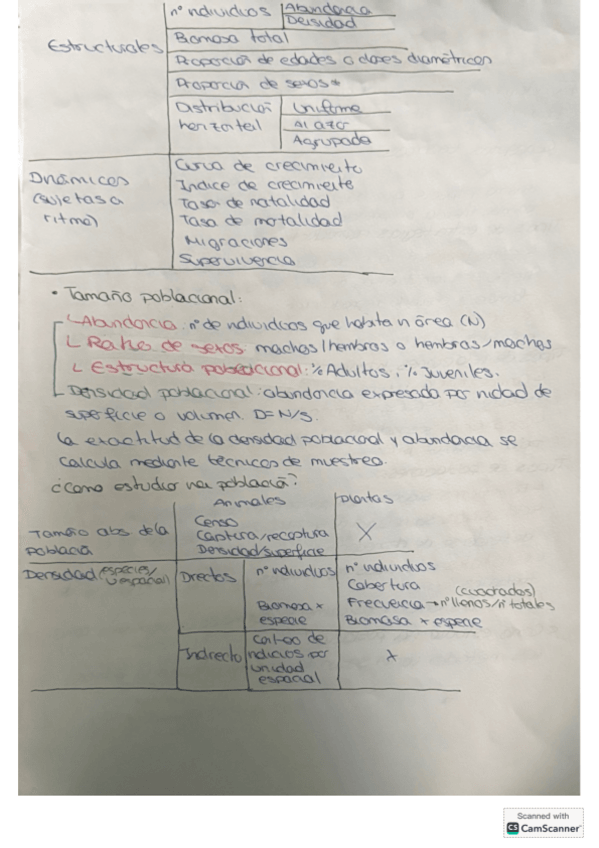 nº individuos Abundancia
Densidad
Estructurales
Biomasa total
Proporción de edades o clases diamétricas
Proporción de sexos *
Distribución Uniforme
horizontal Al azar
Agrupada
Dinámicos Curva de crecimiento
(sujetas a Indice de crecimiento
ritmo) Tasa de natalidad
Tasa de mortalidad
Migraciones
Supervivencia
• Tamaño poblacional:
Abundancia: nº de individuos que habita n área (N)
Ratio de sexos: machos/hembras o hembras/machos
Estructura poblacional: % Adultos, % Juveniles.
Densidad poblacional: abundancia expresada por nidad de
superficie o volumen. D=N/S.
La exactitud de la densidad poblacional y abundancia se
calcula mediante técnicas de muestreo.
¿Como estudiar na población?
Animales Plantas
Tamaño abs de la Censo
población Captura/recaptura X
Densidad/superficie
Densidad (especies/ Directos nº individuos nº individuos
u espacial) Cobertura
(cuadrados)
Frecuencia → nº llenos/nº totales
Biomasa x Biomasa x especie
especie
Indirecto Conteo de
indicios por X
unidad
espacial
Scanned with
CS CamScanner